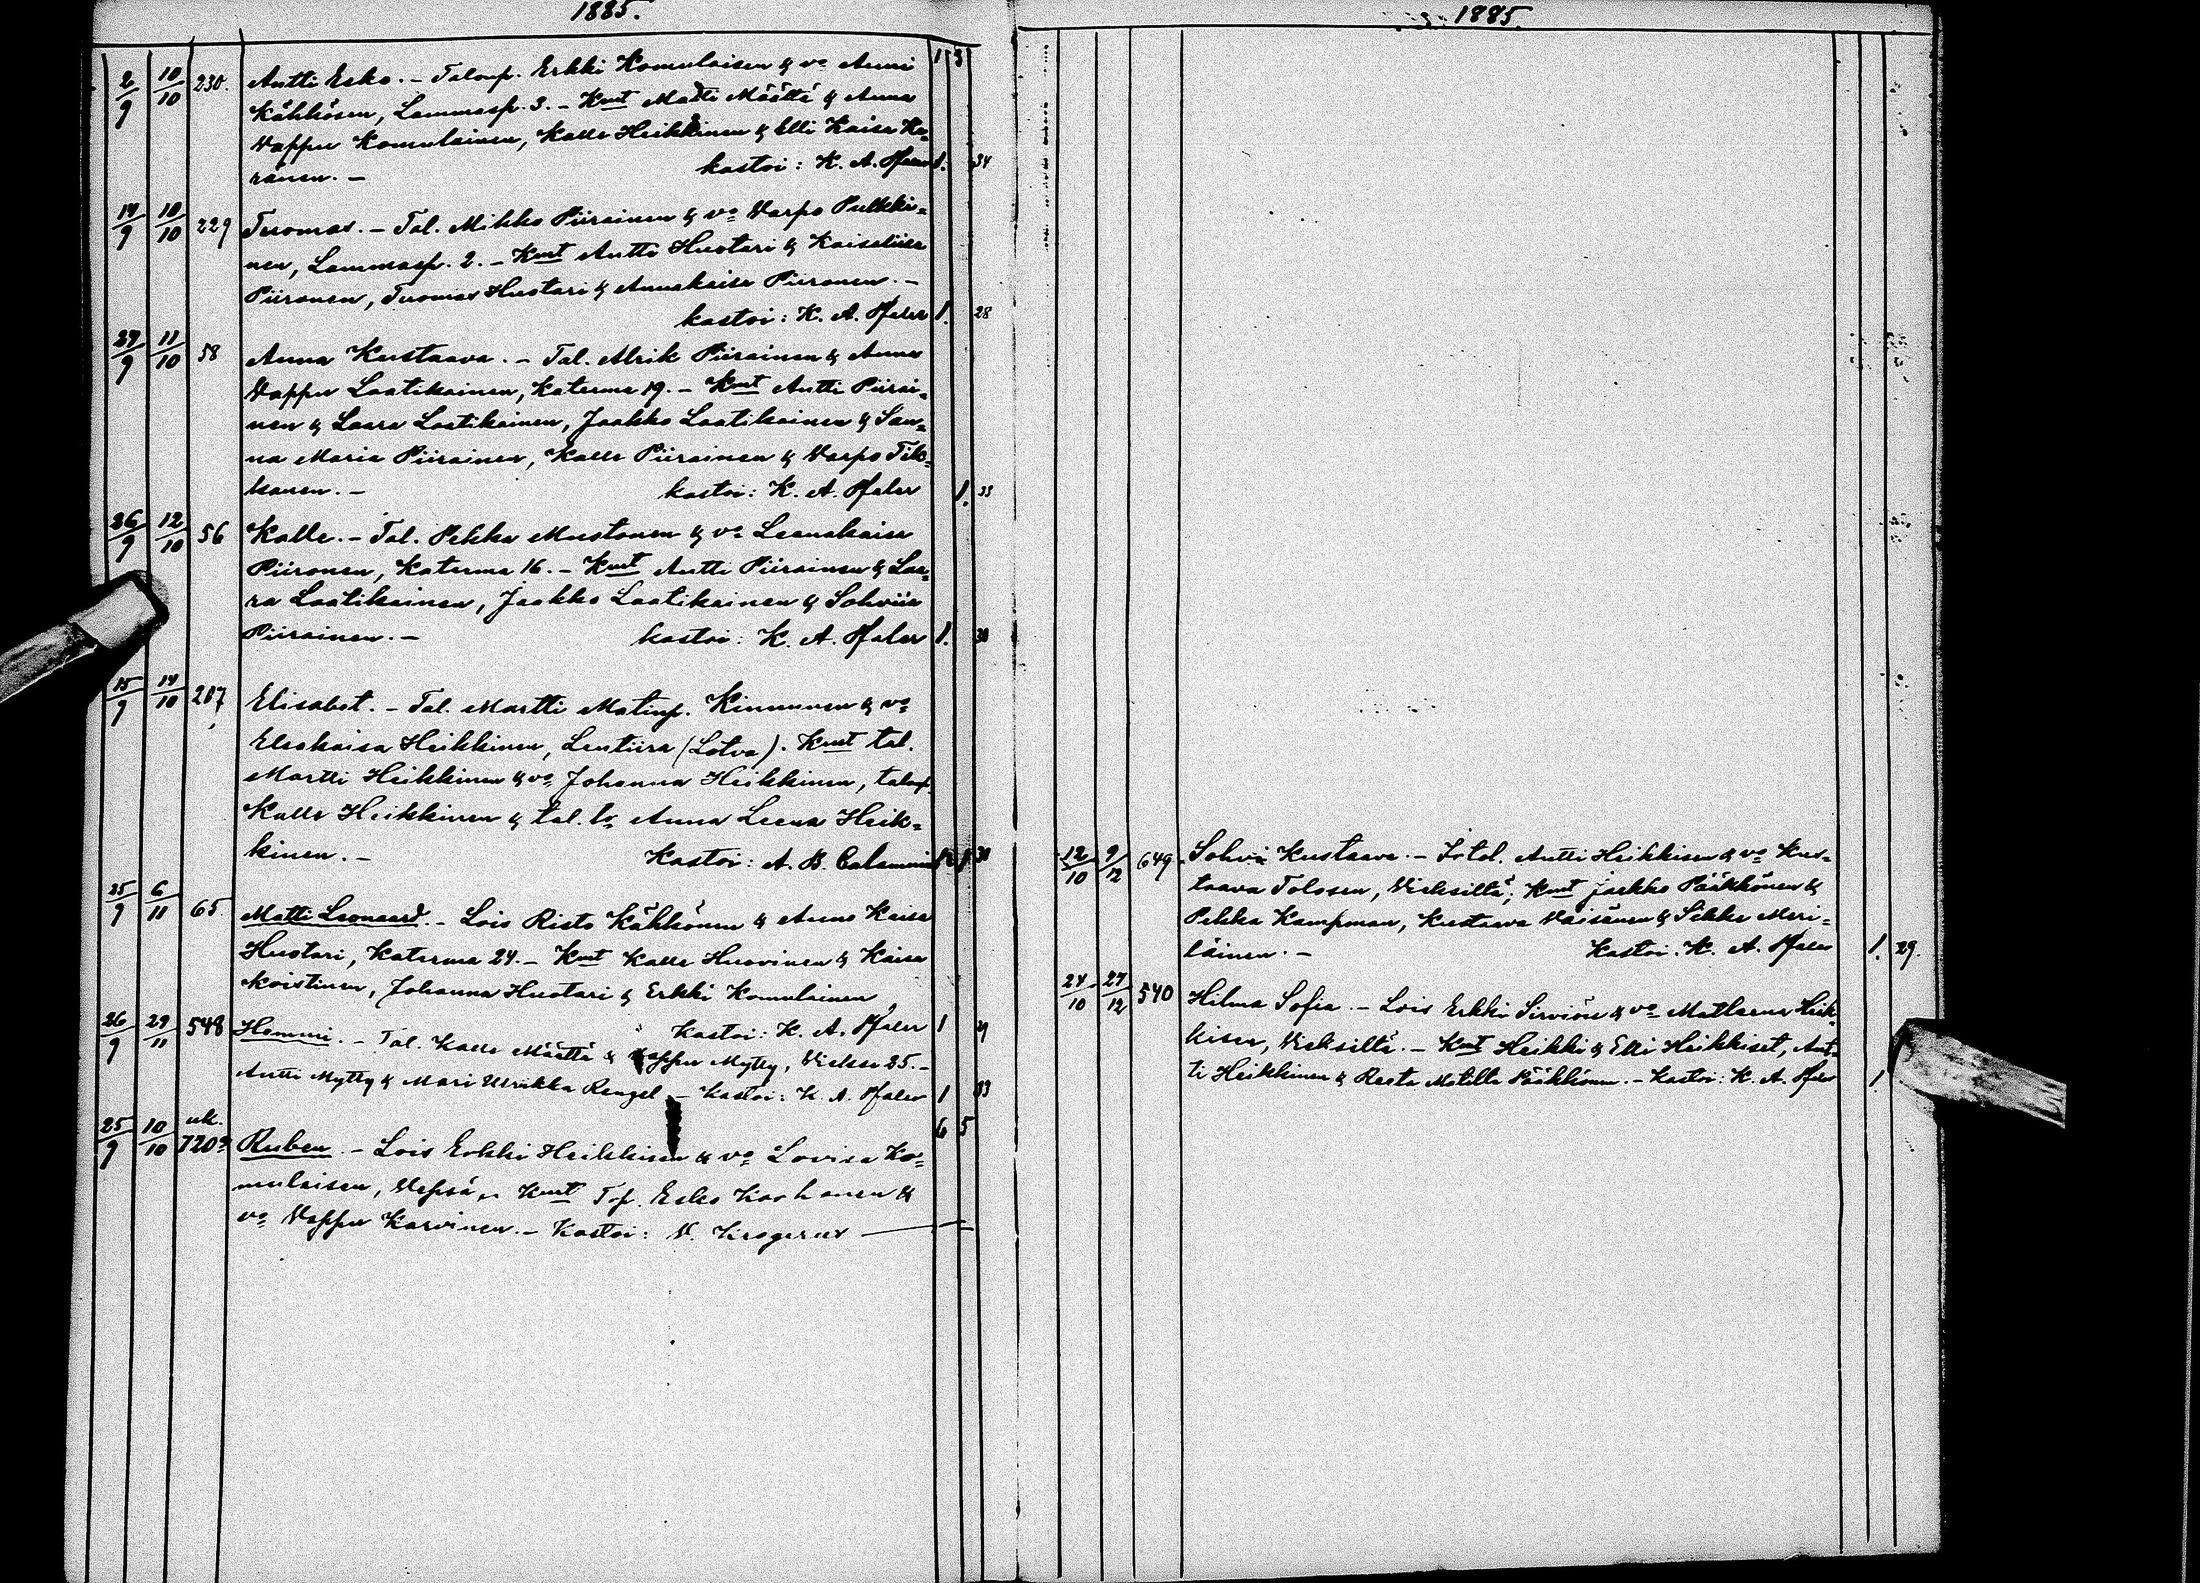 1885.
1 3
2/9 10/10 230. Antti Esko. – Talonp. Erkki Komulaisen & vo Anni
Kähkösen, Lammasp. 3. – Kmt Matti Määttä & Anna
Vappu Komulainen, Kalle Heikkinen & Elli Kaisa Ka=
ranen. – kastoi: K. A. Pfaler 1. 34
14/9 10/10 229 Tuomas. – Tal. Mikko Piirainen & vo Varpo Pulkki=
nen, Lammasp. 2. – Kmt Antti Huotari & Kaisaliisa
Piironen, Tuomas Huotari & Annakaisa Piironen. –
kastoi: K. A. Pfaler 1. 28
29/9 11/10 58 Anna Kustaava. – Tal. Alrik Piirainen & Anna
Vappu Laatikainen, Katerma 19. – Kmt Antti Piirai=
nen & Laara Laatikainen, Jaakko Laatikainen & San=
na Maria Piirainen, Kalle Piirainen & Varpo Tik=
kanen. – kastoi: K. A. Pfaler 1. 33
26/9 12/10 56 Kalle. – Tal. Pekka Mustonen & vo Leenakaisa
Piironen, Katerma 16. – Kmt Antti Piirainen & Laa=
ra Laatikainen, Jaakko Laatikainen & Sohviia
Piirainen. – kastoi: K. A. Pfaler 1. 30
15/9 14/10 217 Elisabet. – Tal. Martti Matinp. Kinnunen & vo
Elsakaisa Heikkinen, Lentiira (Lotva). Kmt tal.
Martti Heikkinen & vo Johanna Heikkinen, talonp.
Kalle Heikkinen & tal. lo Anna Leena Heik=
kinen. – Kastoi: A. B. Calamnius 30
25/9 6/11 65 Matti Leonard. – Lois Risto Kähkönen & Anna Kaisa
Huotari, Katerma 24. – Kmt Kalle Huovinen & Kaisa
Koistinen, Johanna Huotari & Erkki Komulainen
Kastoi: K. A. Pfaler 1 29
26/9 29/11 548 Hemmi. – Tal. Kalle Määttä & Vappu Mylly, Vieksi 25. –
Antti Mylly & Mari Ulrikka Rengel – Kastoi: K. A. Pfaler 1 33
6 5
25/9 10/10 uk. 720 Ruben – Lois Erkki Heikkisen & vo Lovisa Ko=
mulaisen, Vepsä, – Kmt Tp. Esko Korhonen &
vo Vappu Karvinen. – Kastoi: V. Krogerus
1885.
12/10 9/12 649 Sohvi Kustaava. – Itstl. Antti Heikkisen & vo Kus=
taava Tolosen, Vieksiltä; Kmt Jaakko Pääkkönen &
Pekka Kampman, Kustaava Väisänen & Sikke Meri=
läinen. – Kastoi. K. A. Pfaler 1. 29.
24/10 27/12 540 Hilma Sofia – Lois Erkki Sirviön & vo Matleena Heik=
kisen, Vieksiltä. – Kmt Heikki & Elli Heikkiset, Ant=
ti Heikkinen & Reeta Matilla Pääkkönen. – Kastoi: K. A. Pfaler 1